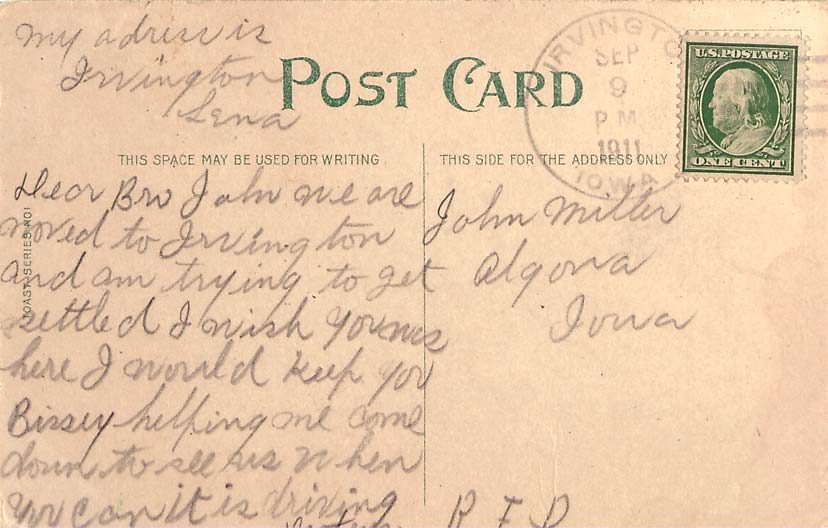 My adress is
Irvington
Lena
POST CARD
THIS SPACE MAY BE USED FOR WRITING
THIS SIDE FOR THE ADDRESS ONLY
IRVINGTON
SEP
9
P.M.
1911
IOWA
U.S. POSTAGE
ONE CENT
Dear Bro John we are
moved to Irvington
and am trying to get
settled I wish you was
here I would keep you
Bissey helping me come
down to see us when
you can it is driving
John Miller
Algona
Iowa
R F D
TOAST SERIES NO1